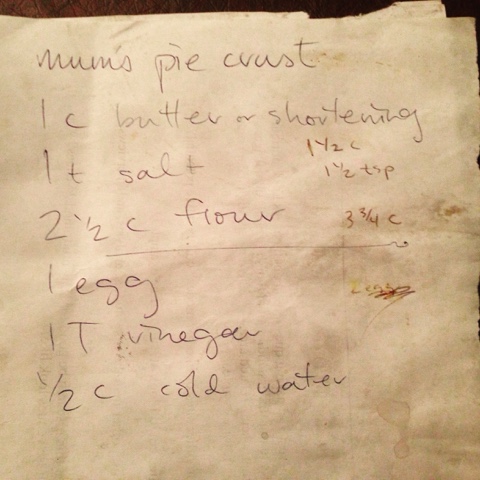 mum's pie crust
1 c butter or shortening
1 1/2 c
1 t salt
1 1/2 tsp
2 1/2 c flour
3 3/4 c
1 egg
1 T vinegar
1/2 c cold water